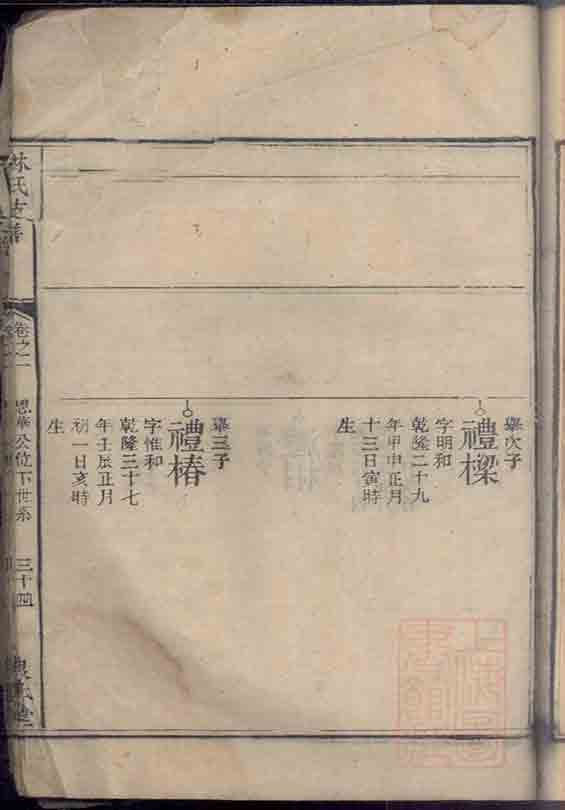 舉次子
禮樑
字明和
乾隆二十九
年甲申正月
十三日寅時
生
舉三子
禮椿
字惟和
乾隆三十七
年壬辰正月
初一日亥時
生
林氏支譜
卷之一
思華公位下世系
三十四
上海圖書館藏